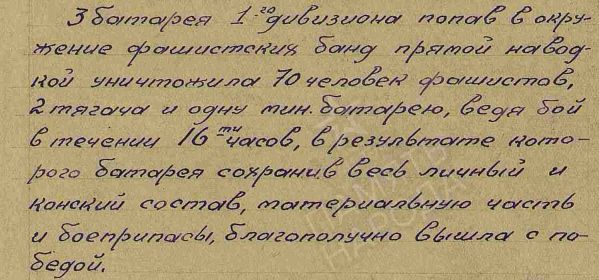 3 батарея 1го дивизиона попав в окру-
жение фашистских банд прямой навод-
кой уничтожила 70 человек фашистов,
2 тягача и одну мин. батарею, ведя бой
в течении 16ти часов, в результате кото-
рого батарея сохранив весь личный и
конский состав, материальную часть
и боеприпасы, благополучно вышла с по-
бедой.
ПАМЯТЬ
НАРОДА